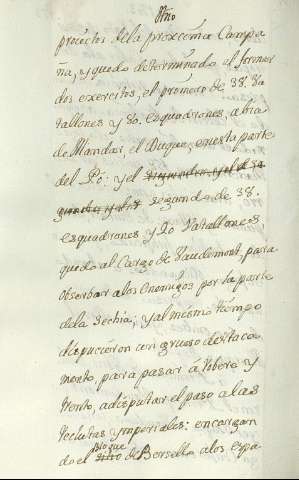 otño
proiectos dela proxcema Campa
ña, y quedo determinado al formar
dos exercitos, el primero de 38. Ba
tallones y 50. esquadrones, abia
de Mandar, el Duque, enesta parte
del Pó: y el segundo y el de
segundo de 38.
esquadrones y 20 Batallones
quedo al Cargo de Vaudemont, para
observar alos enemigos por la parte
dela Sechia; y al mismo tiempo
dispucieron un grueso destaca
mento, para pasar á tobere y
trento, a disputar el paso a las
Reclutas ymperiales: encargan
do el sitio bloque de Bersello alos espa